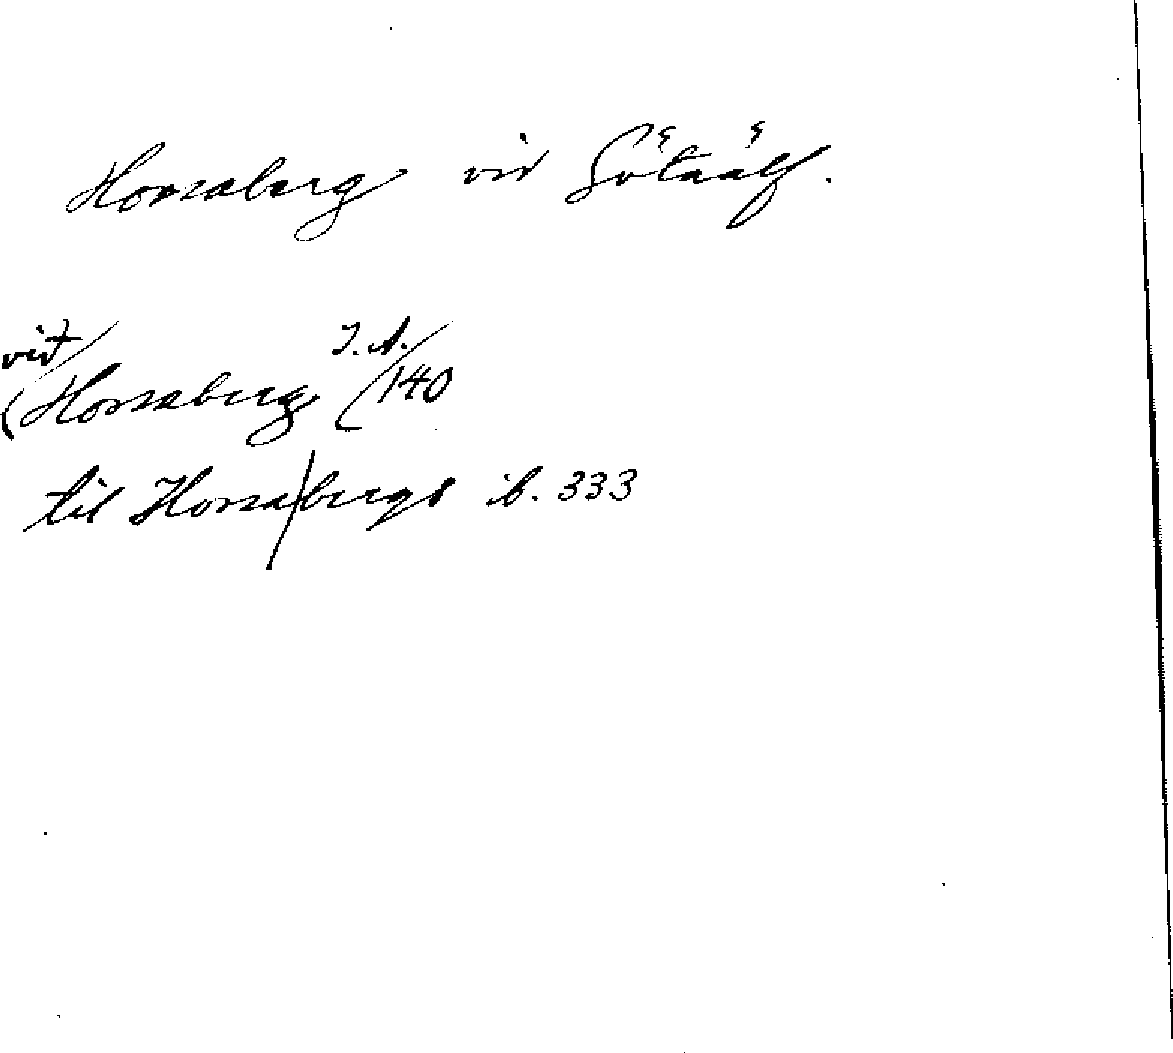 Horsaberg vid Götaälf.
vit/ J. A./
(Horsaberg (140
til Horsa/bergs ib. 333